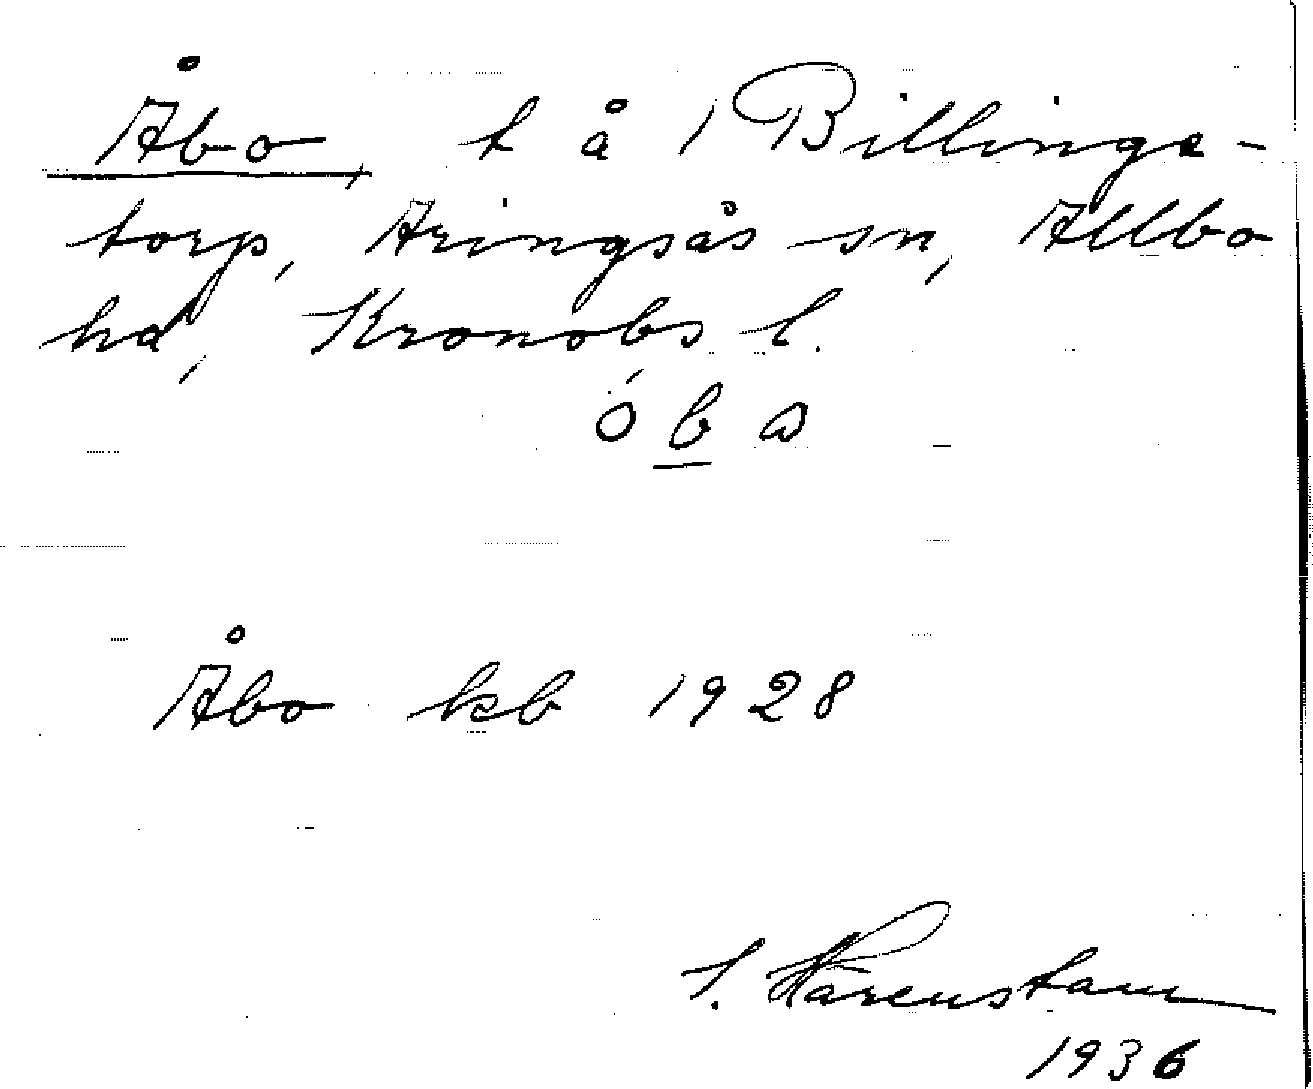 Åbo, t å 1 Billings-
torp, Aringsås sn, Allbo
hd, Kronobs l.
ó b ɷ
Åbo kb 1928
S. Härenstam
1936